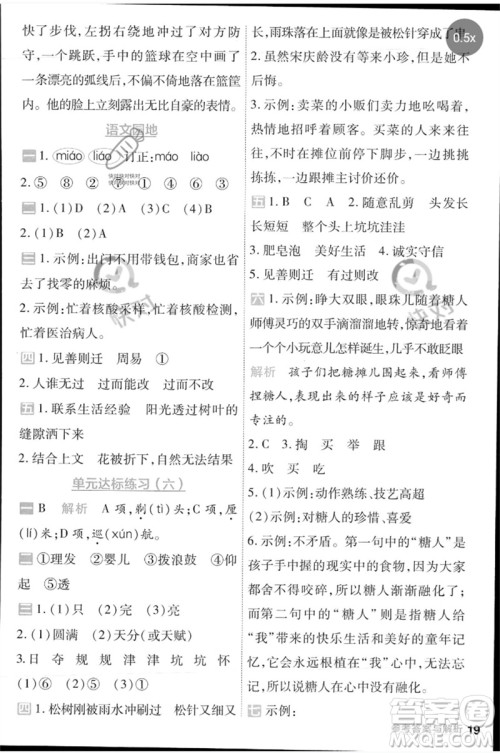 快了步伐，左拐右绕地快冲过了六号，一
个跳跃，手中的篮球在空中画出了
一条漂亮的弧线后不偏不倚地落在篮筐
内。他的脸上立刻露出无比自豪的表情。
语文园地
一 (miáo) (liáo) 订正:māo liào
2. ⑤ ② ⑧ ⑦ ① ④ ③ ⑥
二 1. (1)D (2)A (3)C (4)B
2. (1)有了手机后不用带钱包，商家也省
去了找零的麻烦。
2. 示例:忙着核酸采样，忙着核酸检测，
忙着医治病人。
四 1. 见善则迁 周易 ①
2. 人谁无过 过而能改 ③
五 1. 联系生活经验 阳光透过树叶的
缝隙洒下来
2. 结合上文 花被折下，太可惜
单元达标练习(六)
一 B 解析 A项，剃(tì)头；C项，厘
(lí)米；D项，巡(xún)航。
二 ①理发 ②婴儿 ③拨浪鼓 ④仰
起 ⑤感动
三 1. (1)只 (2)完 (3)亮
2. (1)圆满 (2)天分(或天赋)
3. 日 夺 规 规 津 津 坑 坑
(1)④⑥ (2)①②
四 1. 松树刚刚被雨水冲刷过 松针又细又
亮，雨珠好像要把松针穿成了串
2. 虽然宋庆龄没有等来小珍，但她并
不后悔。
3. 示例:卖菜的小摊贩高声叫卖着，
热情地向大家推荐自己的菜。买菜的
人则不时在摊位前停下来，一边挑挑
拣拣，一边跟摊主讨价还价。
五 1. B A C 2. 随意乱剪 剪发了 长
长短短 整个头上坑坑洼洼
3. 肥皂泡 美好生活 4. 诚实守信
5. 见善则迁 有过则改
六 1. 示例:睁大双眼，眼珠儿随着糖人
师傅灵巧的双手滴溜溜地转，惊奇地看着
一个个小玩意儿诞生，几乎不敢眨眼
解析 孩子们把糖摊儿围起来，看师傅
捏糖人，表现出的样子应该是非常好
奇的。
2. C 3. 掏 买 举 跟
4. 吹 买 吃
5. (1)示例:动作熟练、技艺高超
(2)示例:对糖人的珍惜、喜爱
6. 示例:不矛盾。第一句中的“糖人”
是实实在在的糖人，因为“我”含在嘴里
舍不得咬碎，所以糖人渐渐融化了。
而第二句中的“糖人”代表的是糖人带
给“我”的快乐生活和美好的童年记
忆，无论如何也无法忘
记，所以糖人不会融化。
七 示例:
参考答案与解析 19
0.5x
快对